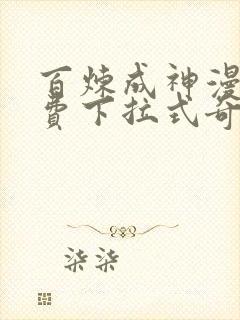 百炼成神漫
费下拉式奇
柒柒